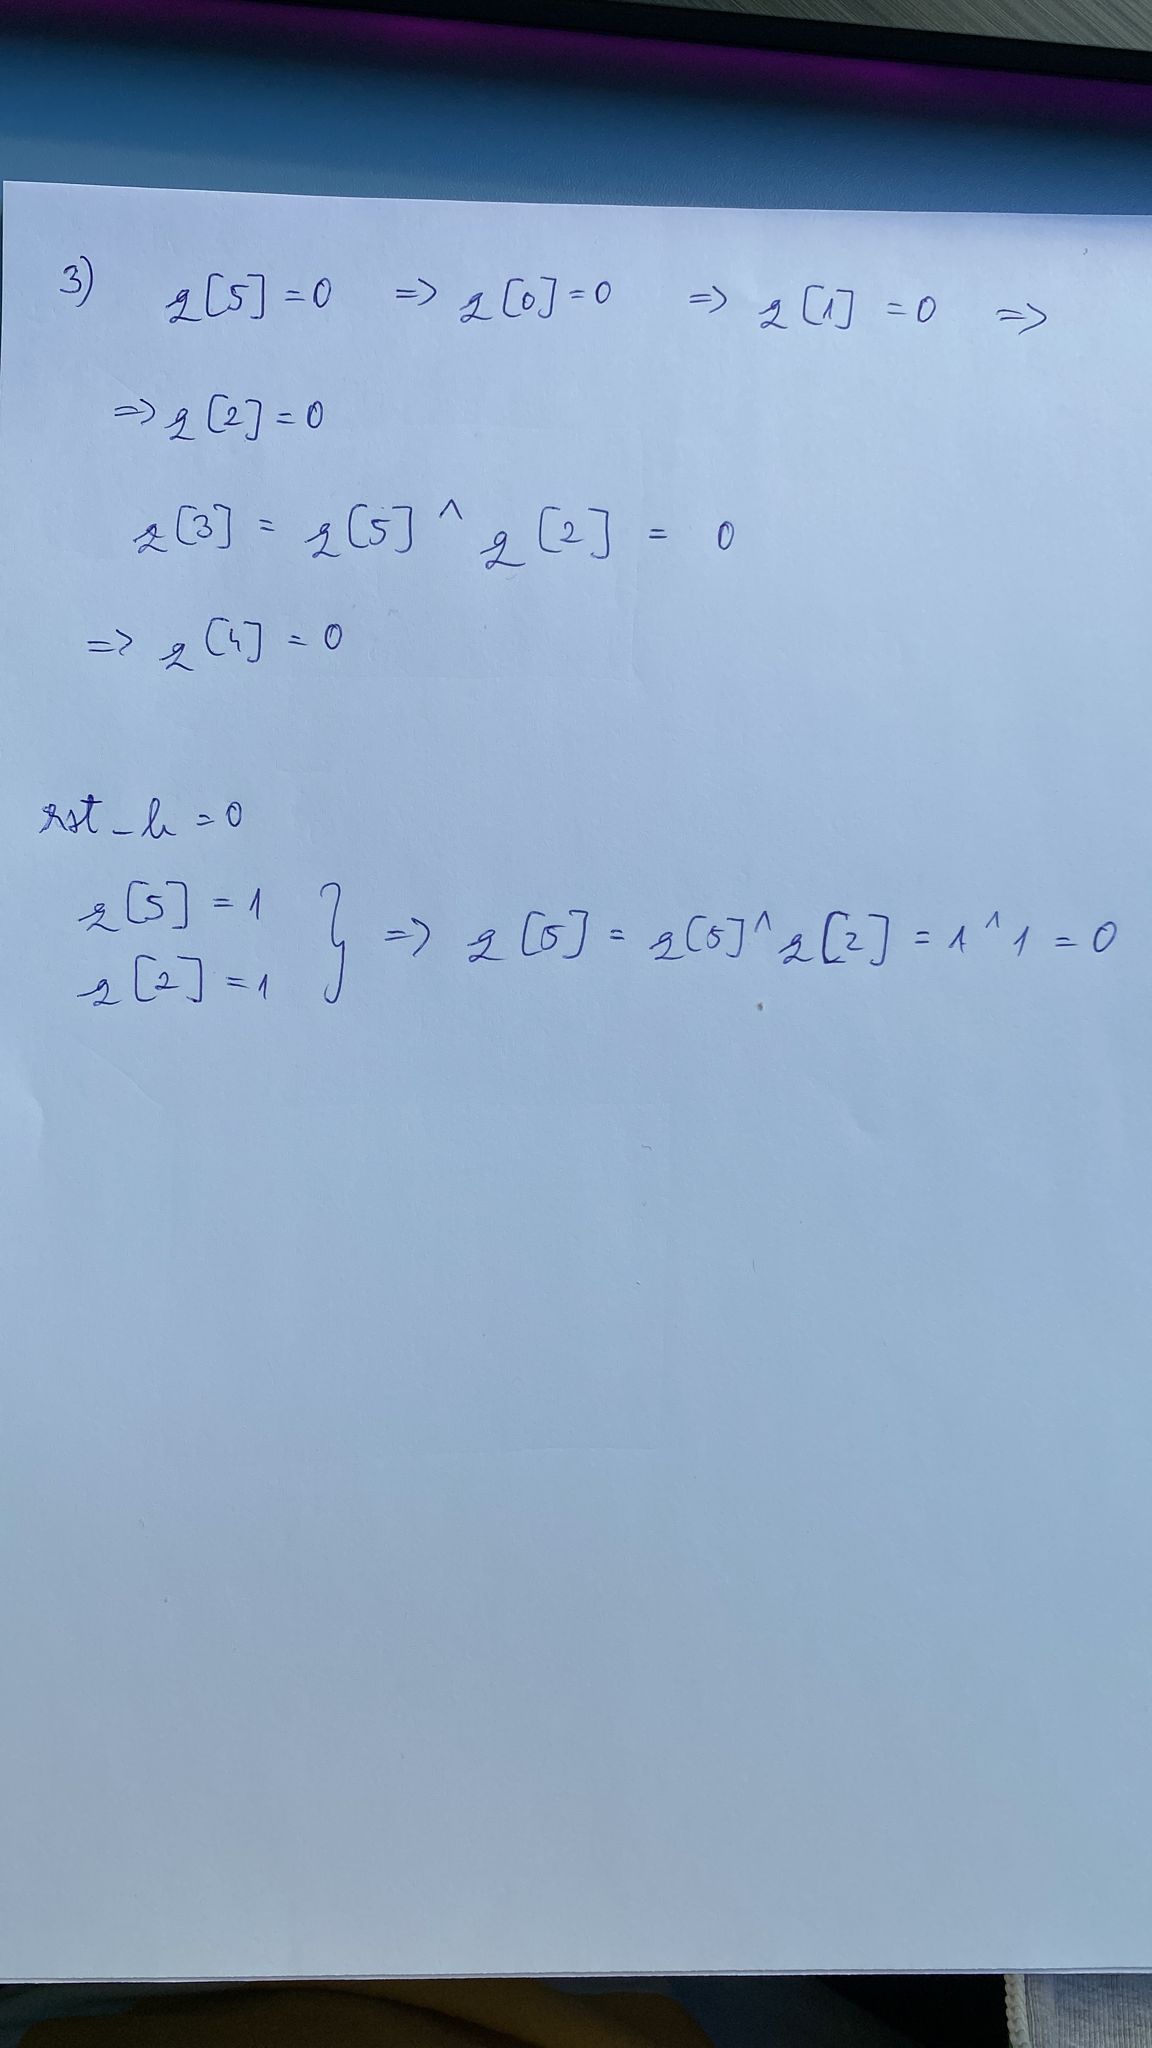 3) q[5] = 0 => q[0] = 0 => q[1] = 0 =>
=> q[2] = 0
q[3] = q[5] ^ q[2] = 0
=> q[4] = 0
rst_b = 0
q[5] = 1
q[2] = 1 } => q[5] = q[5] ^ q[2] = 1 ^ 1 = 0